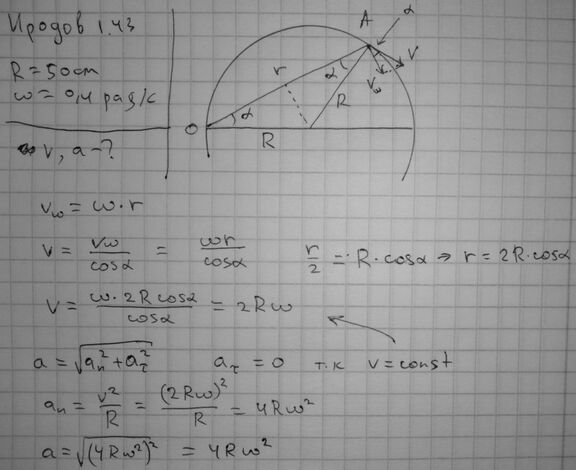 Иродов 1.43
R = 50 cm
ω = 0,4 рад/с
v, a - ?
O
A
α
r
α
α
R
R
V
Vω
vω = ω·r
v = vω/cosα = ωr/cosα
r/2 = R·cosα ⇒ r = 2R·cosα
v = ω·2R cosα/cosα = 2Rω
a = √(aₙ² + aτ²) aτ = 0 т.к v = const
aₙ = v²/R = (2Rω)²/R = 4Rω²
a = √((4Rω²)²) = 4Rω²